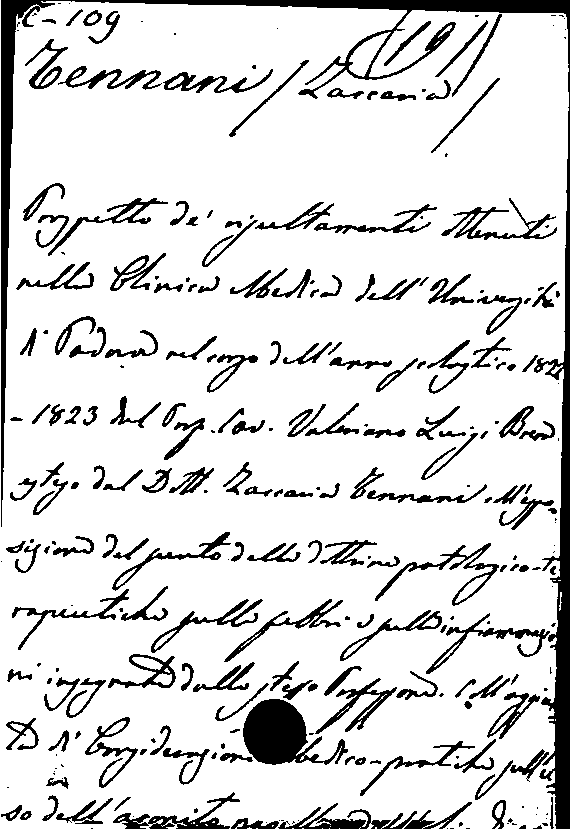 C-109
(19)
Zennani / Zaccaria /
Prospetto de' risultamenti ottenuti
nella Clinica Medica dell' Università
di Padova nel corso dell'anno scolastico 1822
-1823 dal Prof. Cav. Valeriano Luigi Brera
esteso dal Dott. Zaccaria Zennani coll'espo-
sizione del sunto delle dottrine patologico-te
rapeutiche sulle febbri e sulle infiammazio
ni insegnate dallo stesso Professore. Coll'aggiun
ta di Considerazioni Medico-pratiche sull'u
so dell'aconito